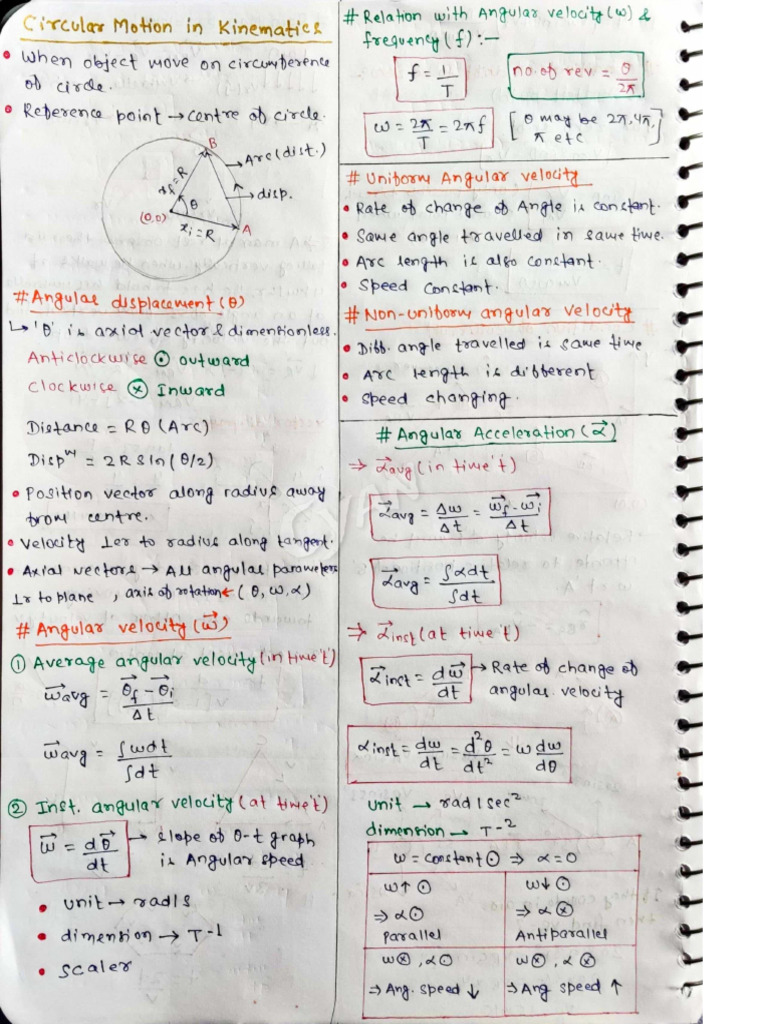 Circular Motion in Kinematics
• When object move on circumference
of circle.
• Reference point → centre of circle.
B
→ Arc (dist.)
→ disp.
θ
(0,0)
xi = R
xf = R
A
# Angular displacement (θ)
↳ 'θ' is axial vector & dimentionless.
Anticlockwise ⊙ outward
Clockwise ⊗ Inward
Distance = Rθ (Arc)
Dispⁿ = 2R sin(θ/2)
• Position vector along radius away
from centre.
• Velocity ⊥er to radius along tangent.
• Axial vectors → All angular parameters
⊥r to plane , axis of rotation ← (θ, ω, α)
# Angular velocity (ω⃗)
① Average angular velocity (in time 't')
ω⃗avg = (θ⃗f - θ⃗i)/Δt
ω⃗avg = ∫ωdt/∫dt
② Inst. angular velocity (at time 't')
ω⃗ = dθ⃗/dt → slope of θ-t graph
is Angular speed
• unit → rad/s
• dimension → T⁻¹
• Scaler
# Relation with Angular velocity (ω) &
frequency (f) :-
f = 1/T
no. of rev = θ/2π
ω = 2π/T = 2πf [θ may be 2π, 4π,
π etc]
# Uniform Angular velocity
• Rate of change of Angle is constant.
• Same angle travelled in same time.
• Arc length is also constant.
• Speed constant.
# Non-uniform angular velocity
• Diff. angle travelled is same time
• Arc length is different
• Speed changing.
# Angular Acceleration (α⃗)
⇒ α⃗avg (in time 't')
α⃗avg = Δω/Δt = (ω⃗f - ω⃗i)/Δt
α⃗avg = ∫αdt/∫dt
⇒ α⃗inst (at time 't')
α⃗inst = dω⃗/dt → Rate of change of
angular velocity
αinst = dω/dt = d²θ/dt² = ω dω/dθ
unit → rad/sec²
dimension → T⁻²
ω = constant ⊙ ⇒ α = 0
ω↑ ⊙
⇒ α ⊙
Parallel
ω↓ ⊙
⇒ α ⊗
Antiparallel
ω⊗ , α⊙
⇒ Ang. speed ↓
ω⊗ , α⊗
⇒ Ang speed ↑
GYAN